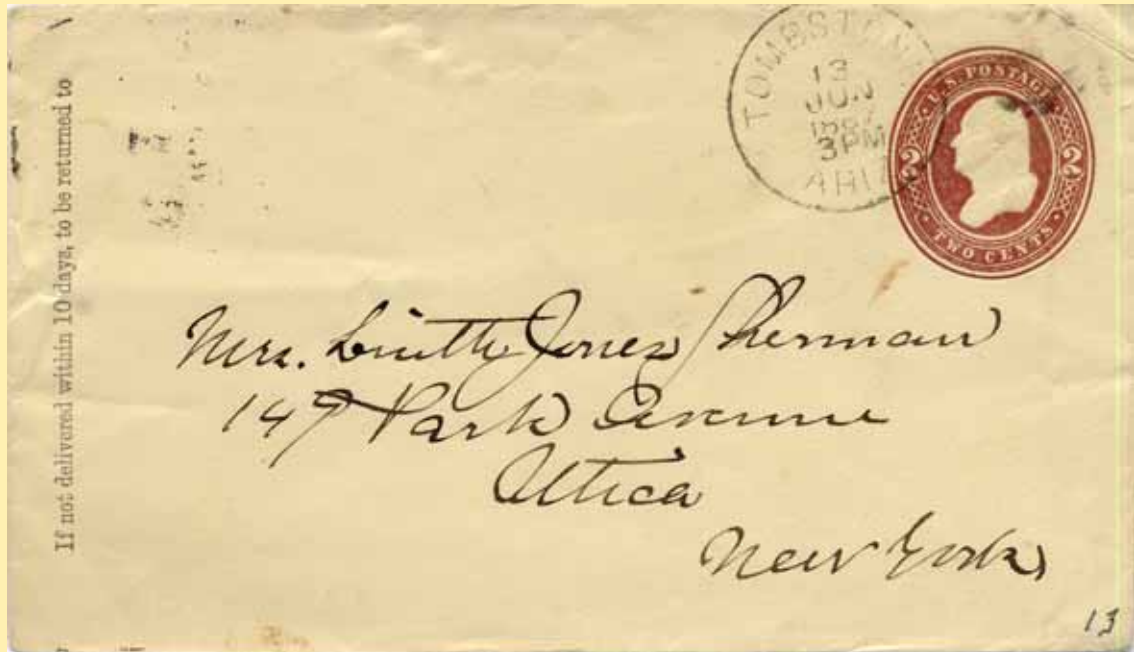 If not delivered within 10 days, to be returned to
TOMBSTON
13
JUN
3PM
ARIZ
U.S. POSTAGE
2 2
TWO CENTS
Mrs. Jones Sherman
Park Avenue
Utica
New York
13